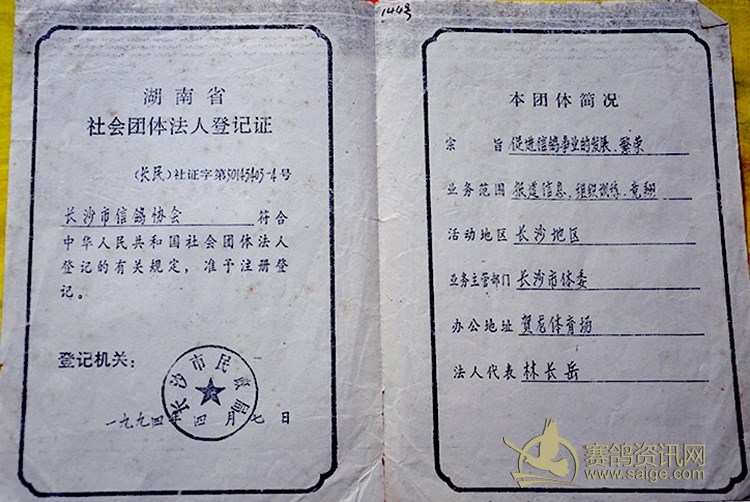 湖南省
社会团体法人登记证
(长民)社证字第30145403-4号
长沙市信鸽协会 符合
中华人民共和国社会团体法人
登记的有关规定，准予注册登
记。
登记机关：
长沙市民政局
一九九四年四月七日
144号
本团体简况
宗旨 促进信鸽事业的发展、繁荣
业务范围 报道信息、组织训练、竞翔
活动地区 长沙地区
业务主管部门 长沙市体委
办公地址 贺龙体育场
法人代表 林长岳
赛鸽资讯网
www.saige.com